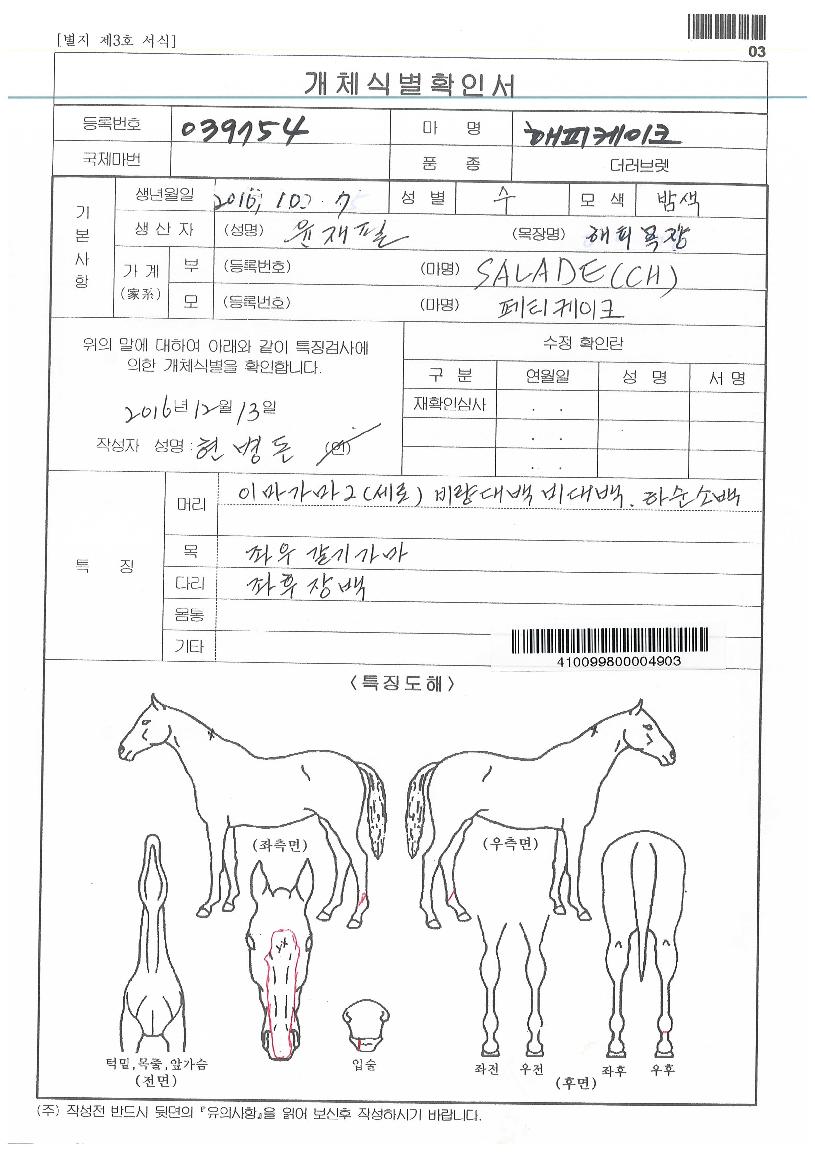 [별지 제3호 서식]
03
개체식별확인서
등록번호 039754 마 명 해피케이크
국제마번 품 종 더러브렛
기본사항
생년월일 성 별 수 모 색 밤색
생 산 자 (성명) 윤재필 (목장명) 해피목장
가 계 (家系) 부 (등록번호) (마명) SALADE(CH)
모 (등록번호) (마명) 페티케이크
위의 말에 대하여 아래와 같이 특징검사에
의한 개체식별을 확인합니다.
2016년 12월 13일
작성자 성명 : 현병돈 (인)
수정 확인란
구 분 연월일 성 명 서 명
재확인심사 . .
. .
. .
특 징
머리 이마가마2(세로) 비량대백 비대백. 하순소백
목 좌우 갈기가마
다리 좌후장백
몸통
기타
410099800004903
<특징도해>
(좌측면) (우측면)
턱밑,목줄,앞가슴
(전면)
입술
좌전 우전 좌후 우후
(후면)
(주) 작성전 반드시 뒷면의 『유의사항』을 읽어 보신후 작성하시기 바랍니다.